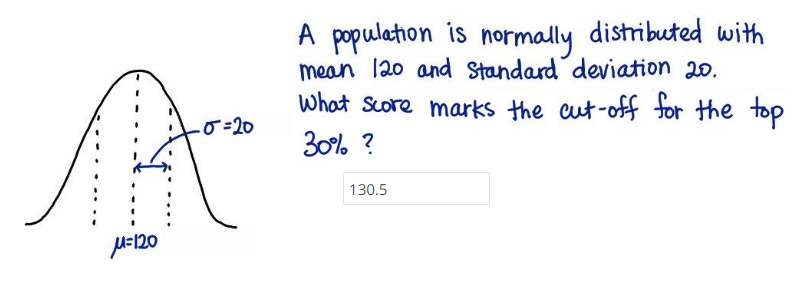 A population is normally distributed with
mean 120 and standard deviation 20.
What score marks the cut-off for the top
30% ?
130.5
σ=20
μ=120